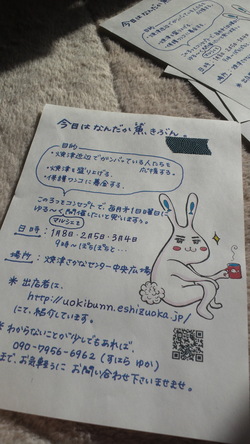 今日はなんだか魚、きぶん。
目的
・焼津近辺でがんばっている人たちを応援する。
・焼津を盛り上げる。
・保護ワンコに募金する。
この3つをコンセプトで、毎月第1日曜日に
ゆる〜く開催したいと思います。
マルシェを
日時：1月8日・2月5日・3月4日
9時〜ぼちぼちと…
場所：焼津さかなセンター中央広場
※出店者は、
http://uokibunn.eshizuoka.jp/
にて、紹介しています。
※わからないことが少しでもあれば、
090-7956-6962（すにら ゆか）
まで、お気軽にお問い合わせ下さいませませ。